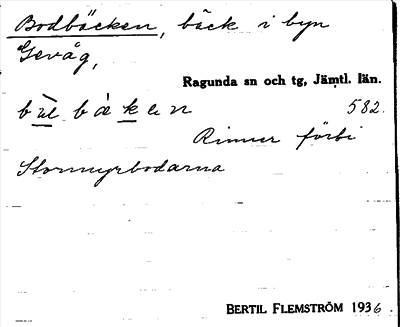 Bodbäcken, bäck i byn
Gevåg,
Ragunda sn och tg, Jämtl. län.
582.
Rinner förbi
Stormyrbodarna
BERTIL FLEMSTRÖM 1936.